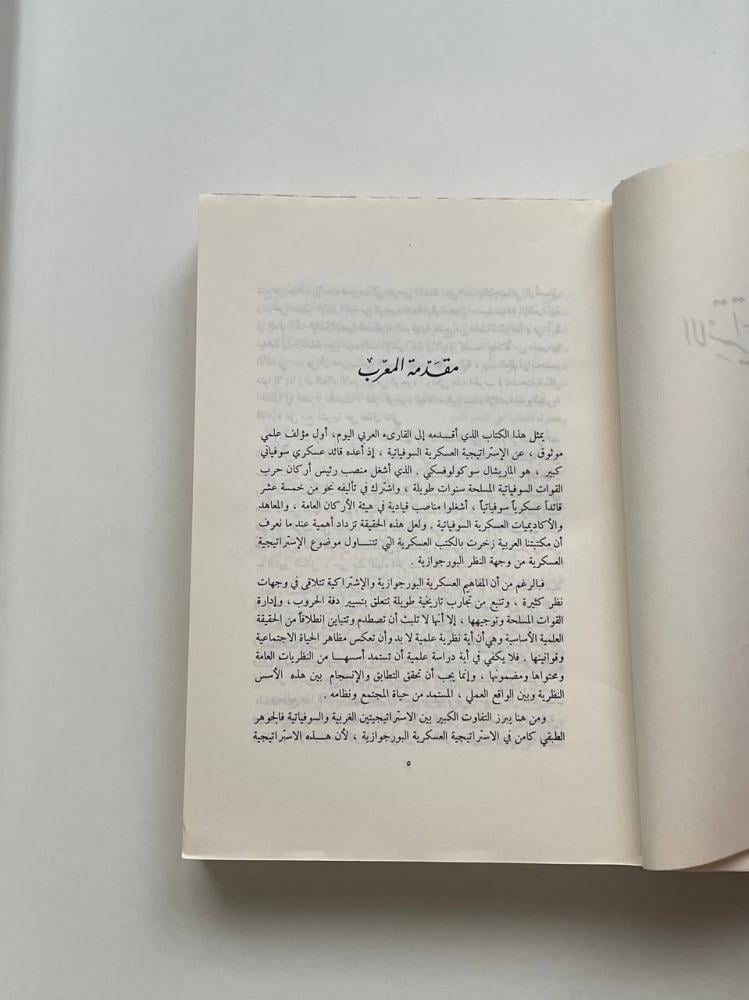 مقدّمة المعرّب
يمثل هذا الكتاب الذي أقـدمه إلى القارىء العربي اليوم، أول مؤلف علمي
موثوق ، عن الإستراتيجية العسكرية السوفياتية ، إذ أعده قائد عسكري سوفياتي
كبير ، هو الماريشال سوكولوفسكي . الذي أشغل منصب رئيس أركان حرب
القوات السوفياتية المسلحة سنوات طويلة ، واشترك في تأليفه نحو من خمسة عشر
قائداً عسكرياً سوفياتياً ، أشغلوا مناصب قيادية في هيئة الأركان العامة ، والمعاهد
والأكاديميات العسكرية السوفياتية . ولعل هذه الحقيقة تزداد أهمية عند ما نعرف
أن مكتبتنا العربية زخرت بالكتب العسكرية التي تتنـاول موضوع الإستراتيجية
العسكرية من وجهة النظر البورجوازية .
فبالرغم من أن المفاهيم العسكرية البورجوازية والإشتراكية تتلاقى في وجهات
نظر كثيرة ، وتنبع من تجارب تاريخية طويلة تتعلق بتسيير دفة الحروب ، وإدارة
القوات المسلحة وتوجيهها ، إلا أنها لا تلبث أن تصطدم وتتباين انطلاقاً من الحقيقة
العلمية الأساسية وهي أن أية نظرية علمية لا بد وأن تعكس مظاهر الحياة الاجتماعية
وقوانينها . فلا يكفي في أية دراسة علمية أن تستمد أسـسهـا من النظريات العامة
ومحتواها ومضمونها ، وإنما يجب أن تحقق التطابق والإنسجام بين هذه الأسس
النظرية وبين الواقع العملي ، المستمد من حياة المجتمع ونظامه .
ومن هنا يبرز التفاوت الكبير بين الاستراتيجيتين الغربية والسوفياتية فالجوهر
الطبقي كامن في الاستراتيجية العسكرية البورجوازية ، لأن هـذه الاستراتيجية
٥